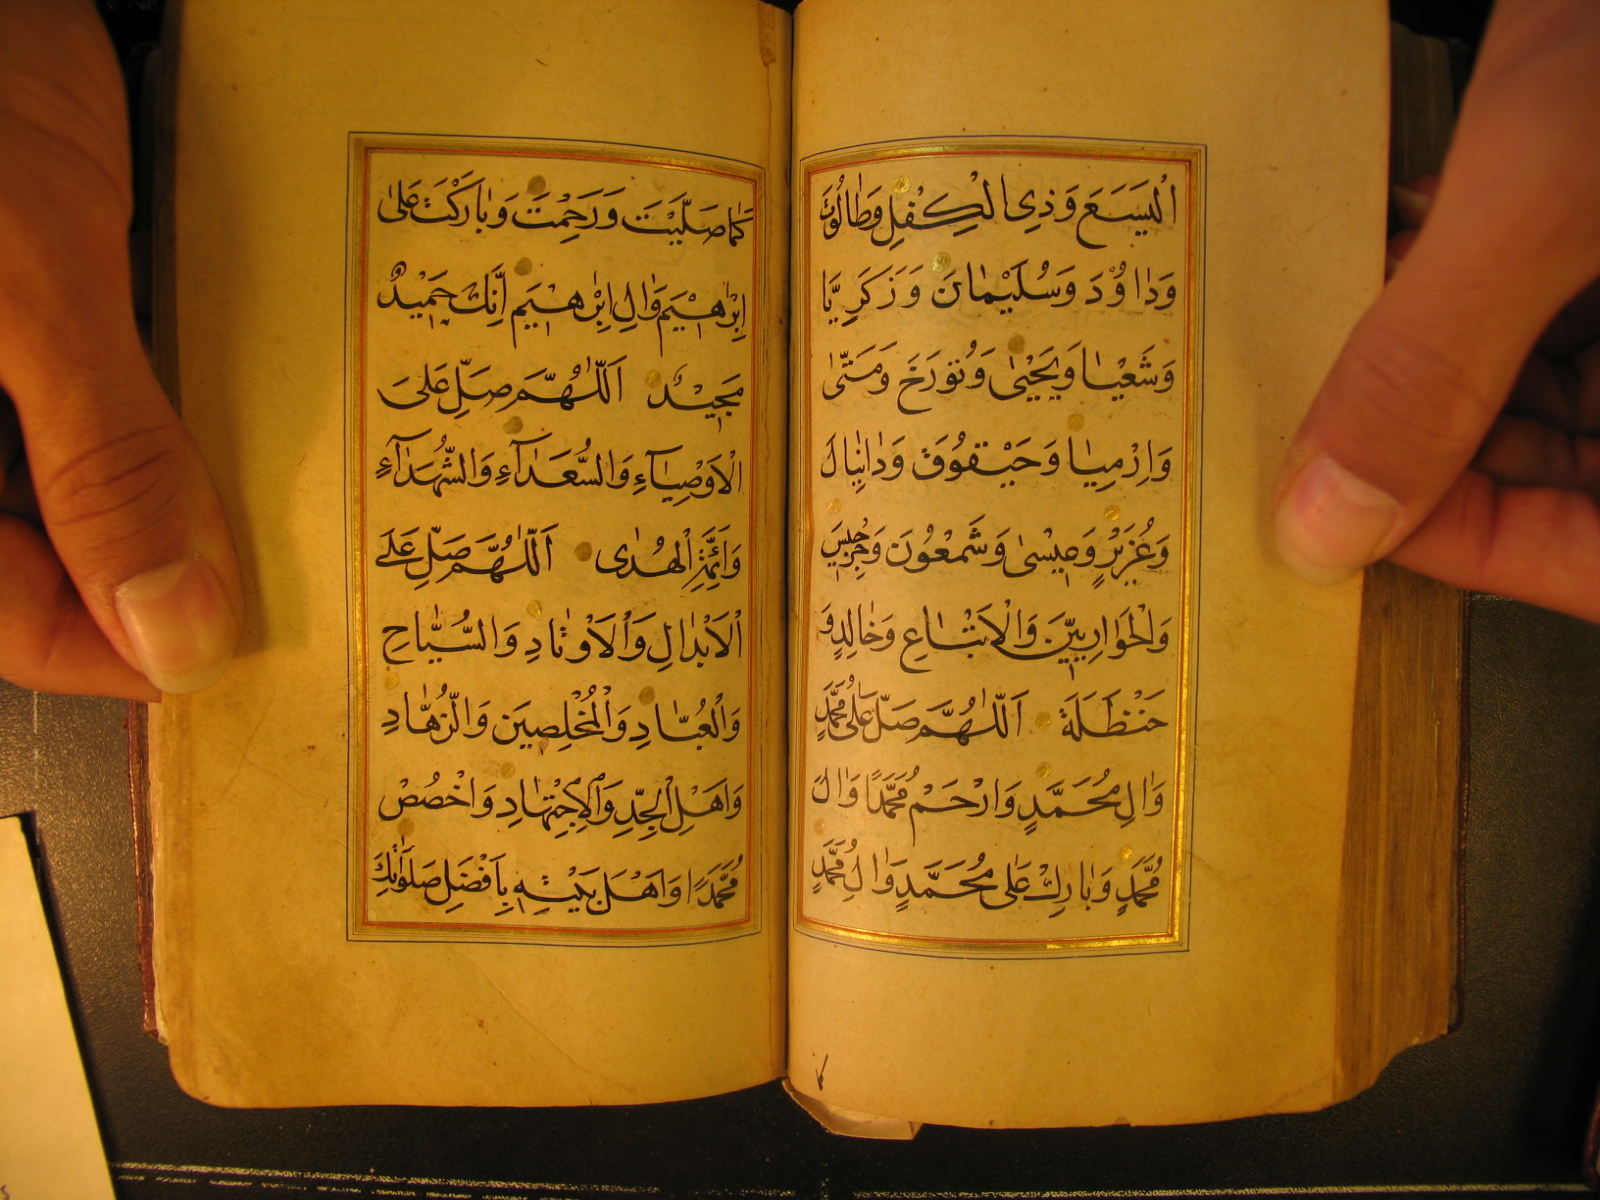 الْيَسَعَ وَذِى الْكِفْلِ وَطَالُوتَ
وَدَاوُدَ وَسُلَيْمَانَ وَزَكَرِيَّا
وَشَعْيَا وَيَحْيٰى وَتُورَخَ وَمَتّٰى
وَاِرْمِيَا وَحَيْقُوقَ وَدَانِيَالَ
وَعُزَيْرٍ وَعِيسٰى وَشَمْعُونَ وَجِرْجِيسَ
وَالْحَوَارِيِّينَ وَالْاَتْبَاعِ وَخَالِدٍ وَ
حَنْظَلَةَ اَللّٰهُمَّ صَلِّ عَلٰى مُحَمَّدٍ
وَاٰلِ مُحَمَّدٍ وَارْحَمْ مُحَمَّدًا وَاٰلَ
مُحَمَّدٍ وَبَارِكْ عَلٰى مُحَمَّدٍ وَاٰلِ مُحَمَّدٍ
كما
كَمَا صَلَّيْتَ وَرَحِمْتَ وَبَارَكْتَ عَلٰى
اِبْرٰهِيمَ وَاٰلِ اِبْرٰهِيمَ اِنَّكَ حَمِيْدٌ
مَجِيْدٌ اَللّٰهُمَّ صَلِّ عَلَى
الْاَوْصِيَآءِ وَالسُّعَدَآءِ وَالشُّهَدَآءِ
وَاَئِمَّةِ الْهُدٰى اَللّٰهُمَّ صَلِّ عَلَى
الْاَبْدَالِ وَالْاَوْتَادِ وَالسُّيَّاحِ
وَالْعُبَّادِ وَالْمُخْلِصِيْنَ وَالزُّهَّادِ
وَاَهْلِ الْجِدِّ وَالْاِجْتِهَادِ وَاخْصُصْ
مُحَمَّدًا وَاَهْلَ بَيْتِهِ بِاَفْضَلِ صَلَوَاتِكَ